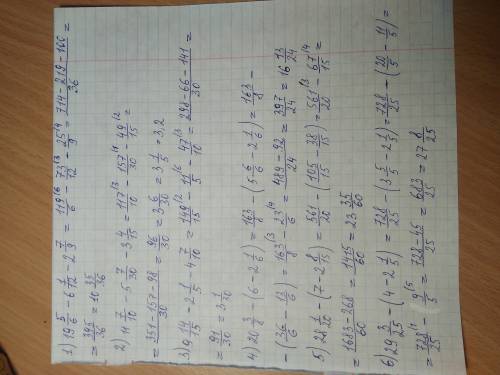 1) 19 5/6 - 6 1/12 - 2 7/9 = 119/6 \6 - 73/12 \3 - 25/9 \4 = 714-219-100/36 =
= 395/36 = 10 35/36
2) 11 7/10 - 5 7/30 - 3 4/15 = 117/10 \3 - 157/30 \1 - 49/15 \2 =
= 351-157-98/30 = 96/30 = 3 6/30 = 3 1/5 = 3,2
3) 9 14/15 - 2 1/5 - 4 7/10 = 149/15 \2 - 11/5 \6 - 47/10 \3 = 298-66-141/30 =
= 91/30 = 3 1/30
4) 20 3/8 - (6 - 2 1/6) = 163/8 - (5 6/6 - 2 1/6) = 163/8 -
- (36/6 - 13/6) = 163/8 \3 - 23/6 \4 = 489-92/24 = 397/24 = 16 13/24
5) 28 1/20 - (7 - 2 8/15) = 561/20 - (105/15 - 38/15) = 561/20 \3 - 67/15 \4 =
= 1683-268/60 = 1415/60 = 23 35/60
6) 29 3/25 - (4 - 2 1/5) = 728/25 - (3 5/5 - 2 1/5) = 728/25 - (20/5 - 11/5) =
= 728/25 \1 - (9/5 \5 = 728-45/25 = 683/25 = 27 8/25